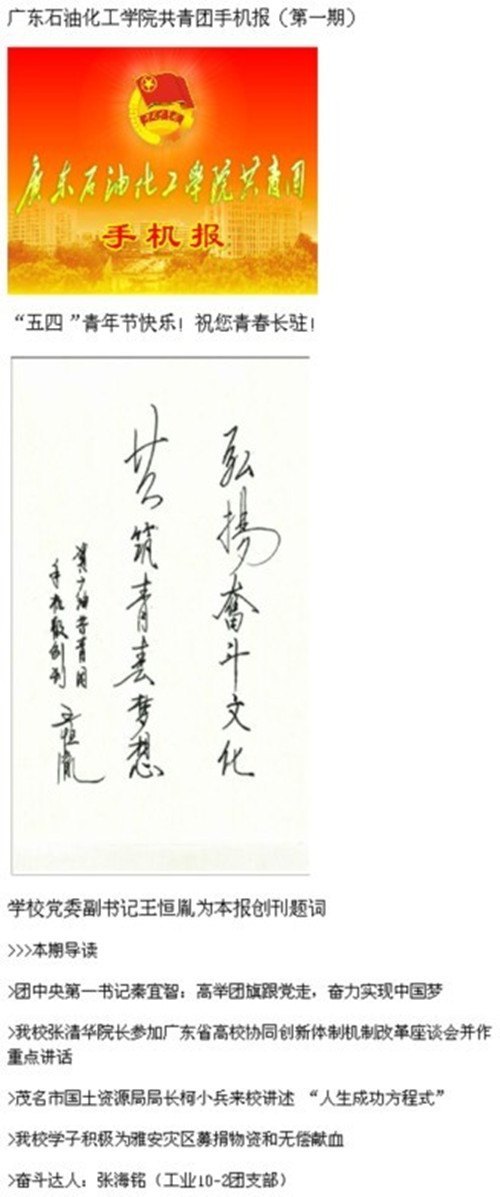 广东石油化工学院共青团手机报（第一期）
廣东石油化工学院共青团
手机报
“五四 ”青年节快乐！祝您青春长驻！
弘揚奮斗文化
共筑青春梦想
贺广油学青团
手机报创刊
王恒胤
学校党委副书记王恒胤为本报创刊题词
>>>本期导读
>团中央第一书记秦宜智：高举团旗跟党走，奋力实现中国梦
>我校张清华院长参加广东省高校协同创新体制机制改革座谈会并作
重点讲话
>茂名市国土资源局局长柯小兵来校讲述 “人生成功方程式”
>我校学子积极为雅安灾区募捐物资和无偿献血
>奋斗达人：张海铭（工业10-2团支部）